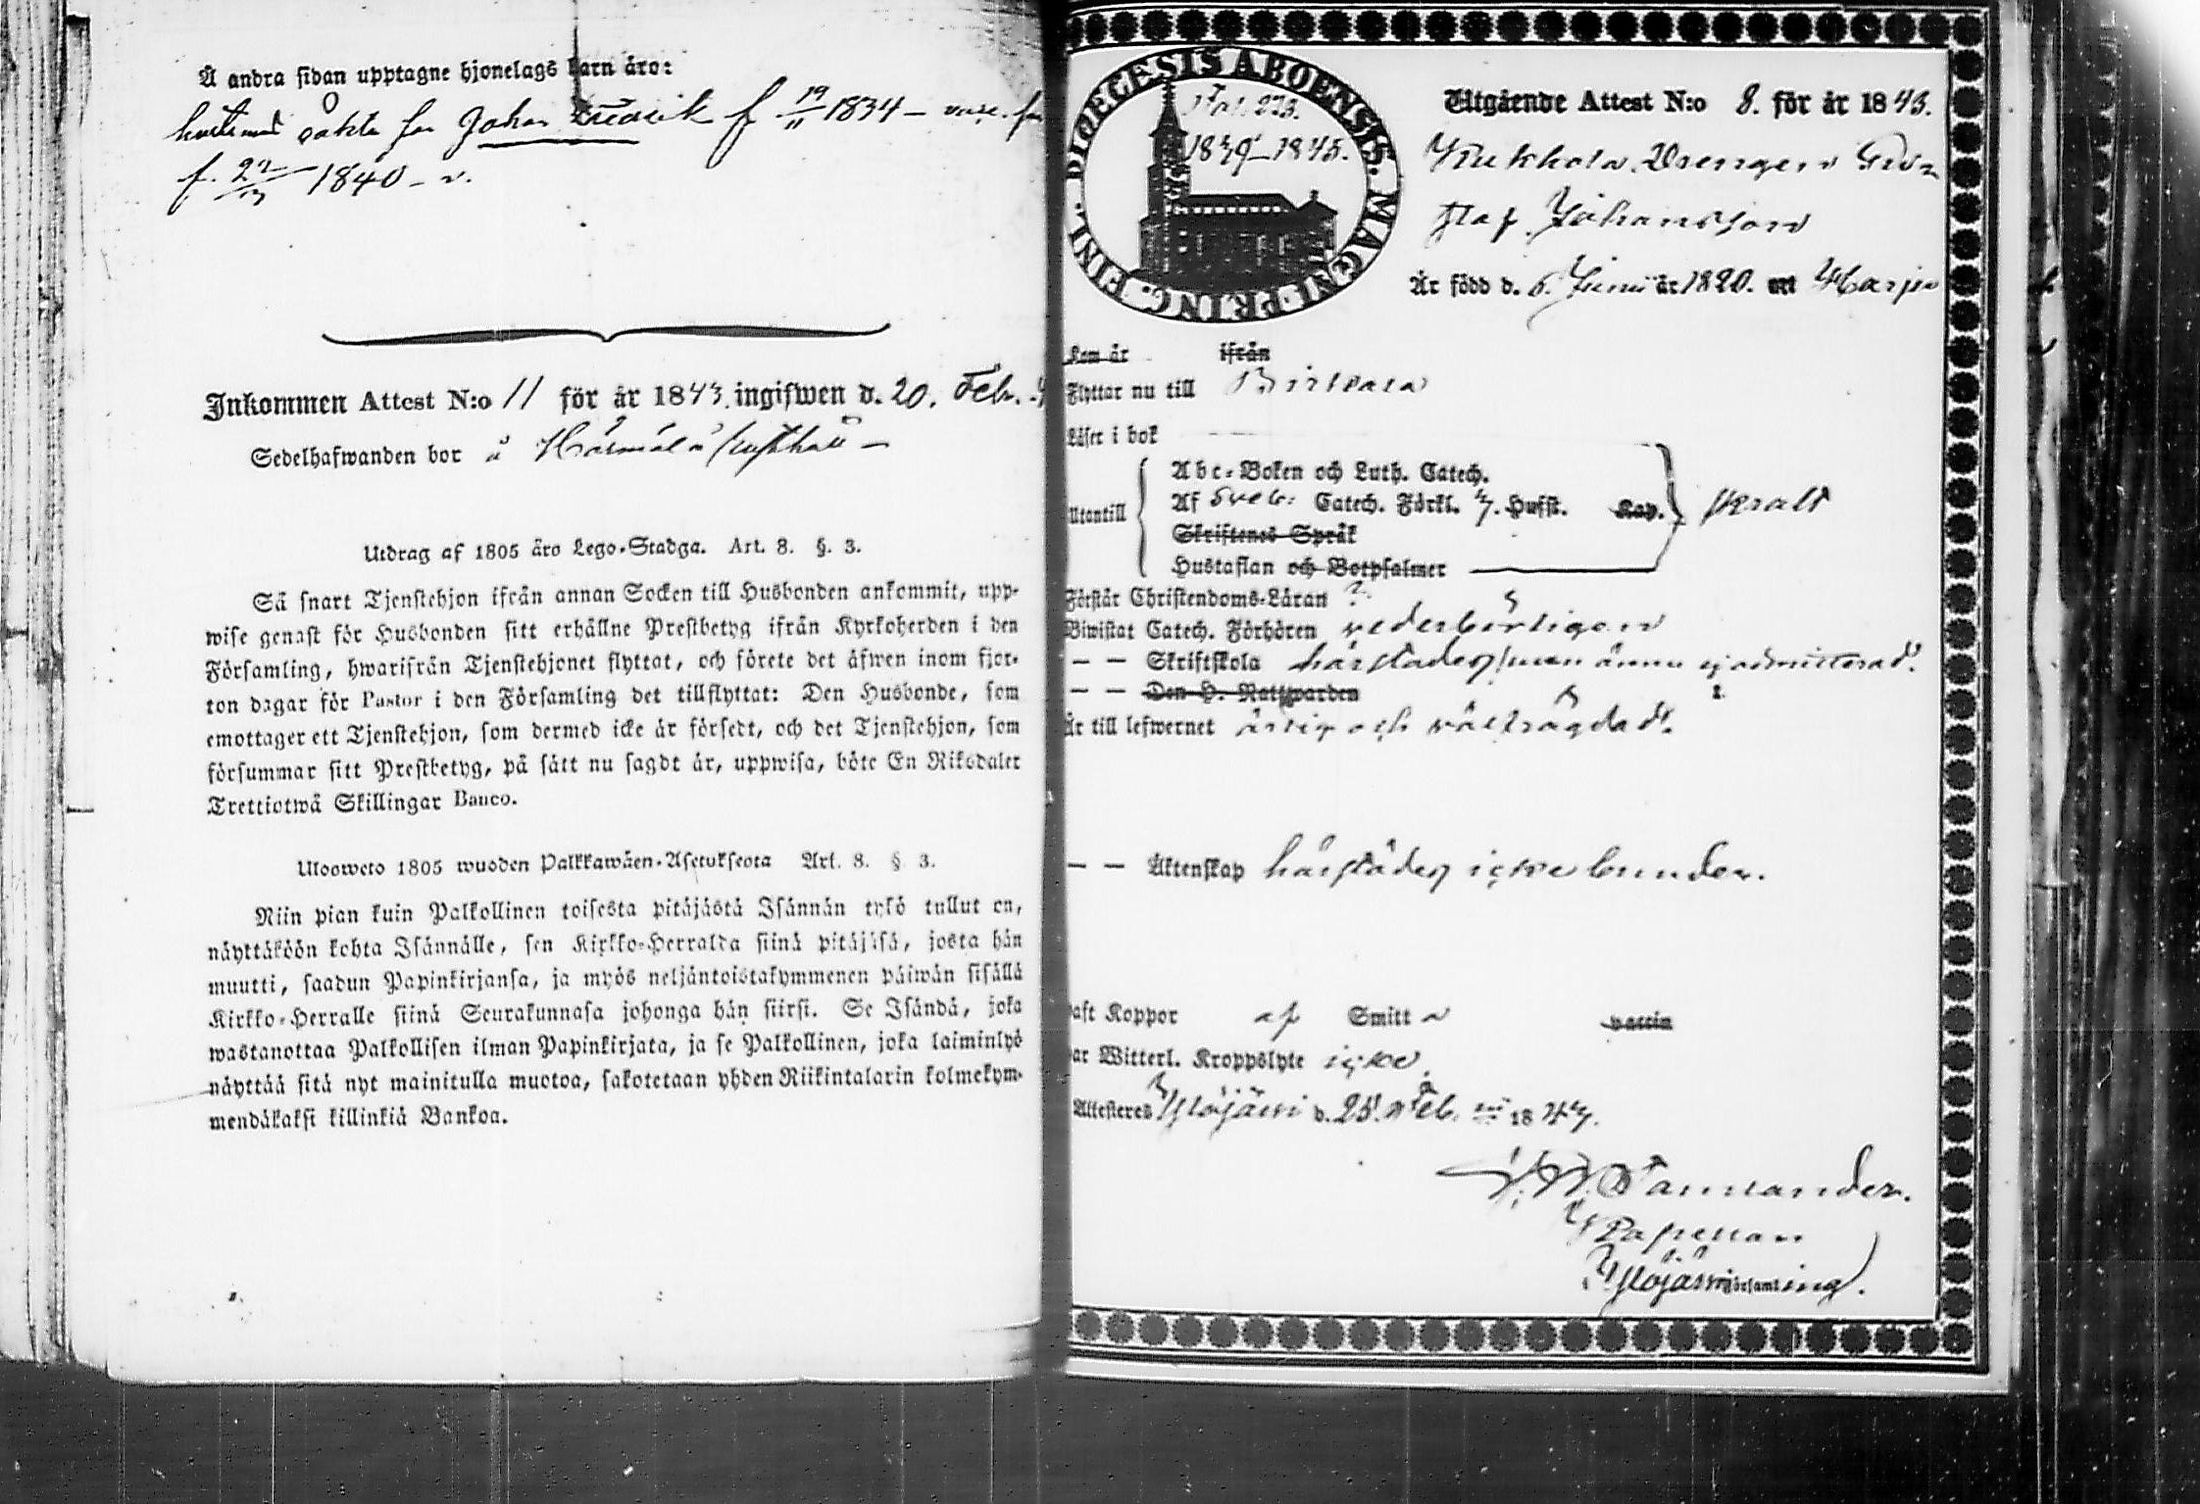 Å andra sidan upptagne hjonelags barn äro:
hustruns oäkta son Johan Fredrik f 19/11 1834 –
f. 1840 – v.
Inkommen Attest N:o 11 för år 1843 ingifwen d. 20. Feb.
Sedelhafwanden bor å Härmälä
Utdrag af 1805 års Lego-Stadga. Art. 8. §. 3.
Så snart Tjenstehjon ifrån annan Socken till Husbonden ankommit, upp-
wise genast för Husbonden sitt erhållne Prestbetyg ifrån Kyrkoherden i den
Församling, hwarifrån Tjenstehjonet flyttat, och förete det äfwen inom fjor-
ton dagar för Pastor i den Församling det tillflyttat: Den Husbonde, som
emottager ett Tjenstehjon, som dermed icke är försedt, och det Tjenstehjon, som
försummar sitt Prestbetyg, på sätt nu sagdt är, uppwisa, böte En Riksdaler
Trettiotwå Skillingar Banco.
Ulosweto 1805 wuoden Palkkawäen-Asetuksesta Art. 8. § 3.
Niin pian kuin Palkollinen toisesta pitäjästä Isännän tykö tullut on,
näyttäköön kohta Isännälle, sen Kirkko-Herralda siinä pitäjäsä, josta hän
muutti, saadun Papinkirjansa, ja myös neljäntoistakymmenen päiwän sisällä
Kirkko-Herralle siinä Seurakunnasa johonga hän siirsi. Se Isändä, joka
wastanottaa Palkollisen ilman Papinkirjata, ja se Palkollinen, joka laiminlyö
näyttää sitä nyt mainitulla muotoa, sakotetaan yhden Riikintalarin kolmekym-
mendäkaksi killinkiä Bankoa.
FINL. DIOECESIS ABOENSIS. MAGNI PRINC.
Fol. 273.
1839–1845.
Utgående Attest N:o 8. för år 1843.
Kukkola Drengen Gus-
taf Johansson
Är född d. 6. Junii år 1820. Harju
Kom år ifrån
Flyttar nu till Birkala
Läser i bok
Utantill
Abc-Boken och Luth. Catech.
Af Sveb: Catech. Förkl. Hufst. Kap.
Skriftenes Språk
Hustaflan och Botpsalmer
swalt
Förstår Christendoms-Läran ?
Biwistat Catech. Förhören vederbörligen
— — Skriftskola härstädes, men ännu ej admitterad.
— — Den H. Nattwarden
Är till lefwernet ärlig och välfrägdad.
— — Äktenskap härstädes icke bunden.
haft Koppor af Smitta vaccin
har Witterl. Kroppslyte icke.
Attesteras Ylöjärvi d. 25. Feb. 1843.
Tamlander.
Kapellan
Ylöjärvi församling.